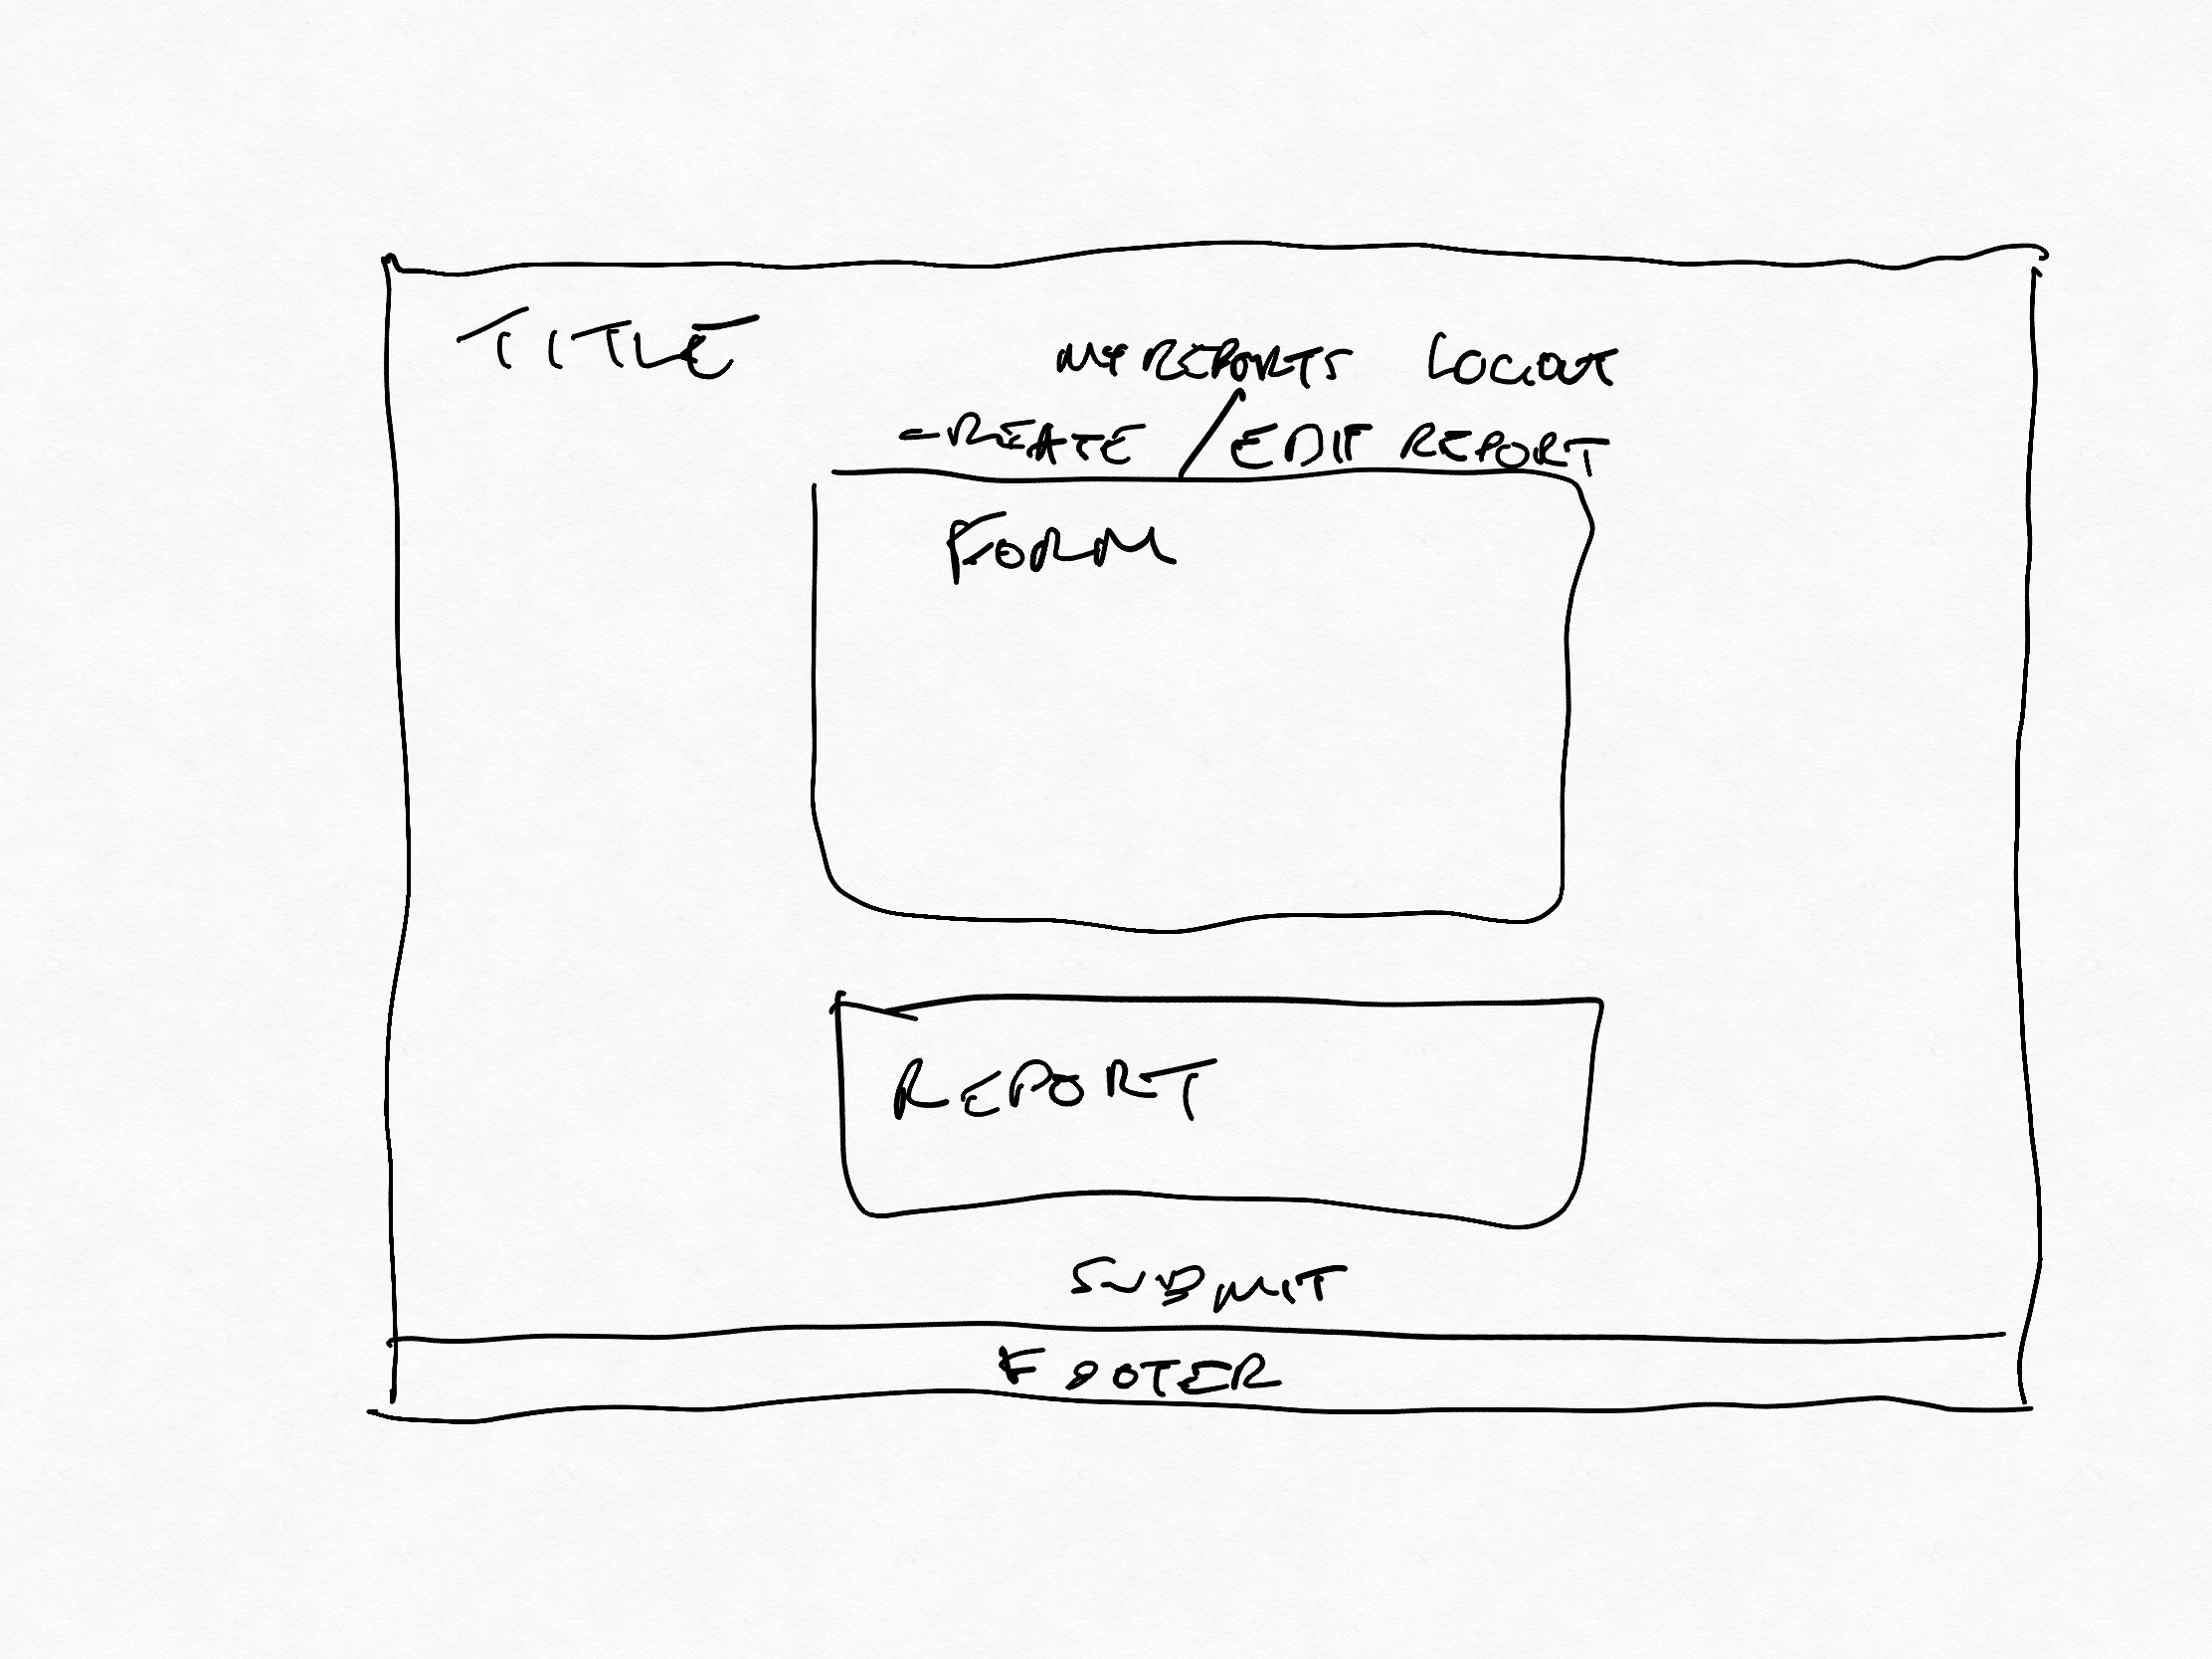 TITLE
MY REPORTS LOGOUT
CREATE / EDIT REPORT
FORM
REPORT
SUBMIT
FOOTER